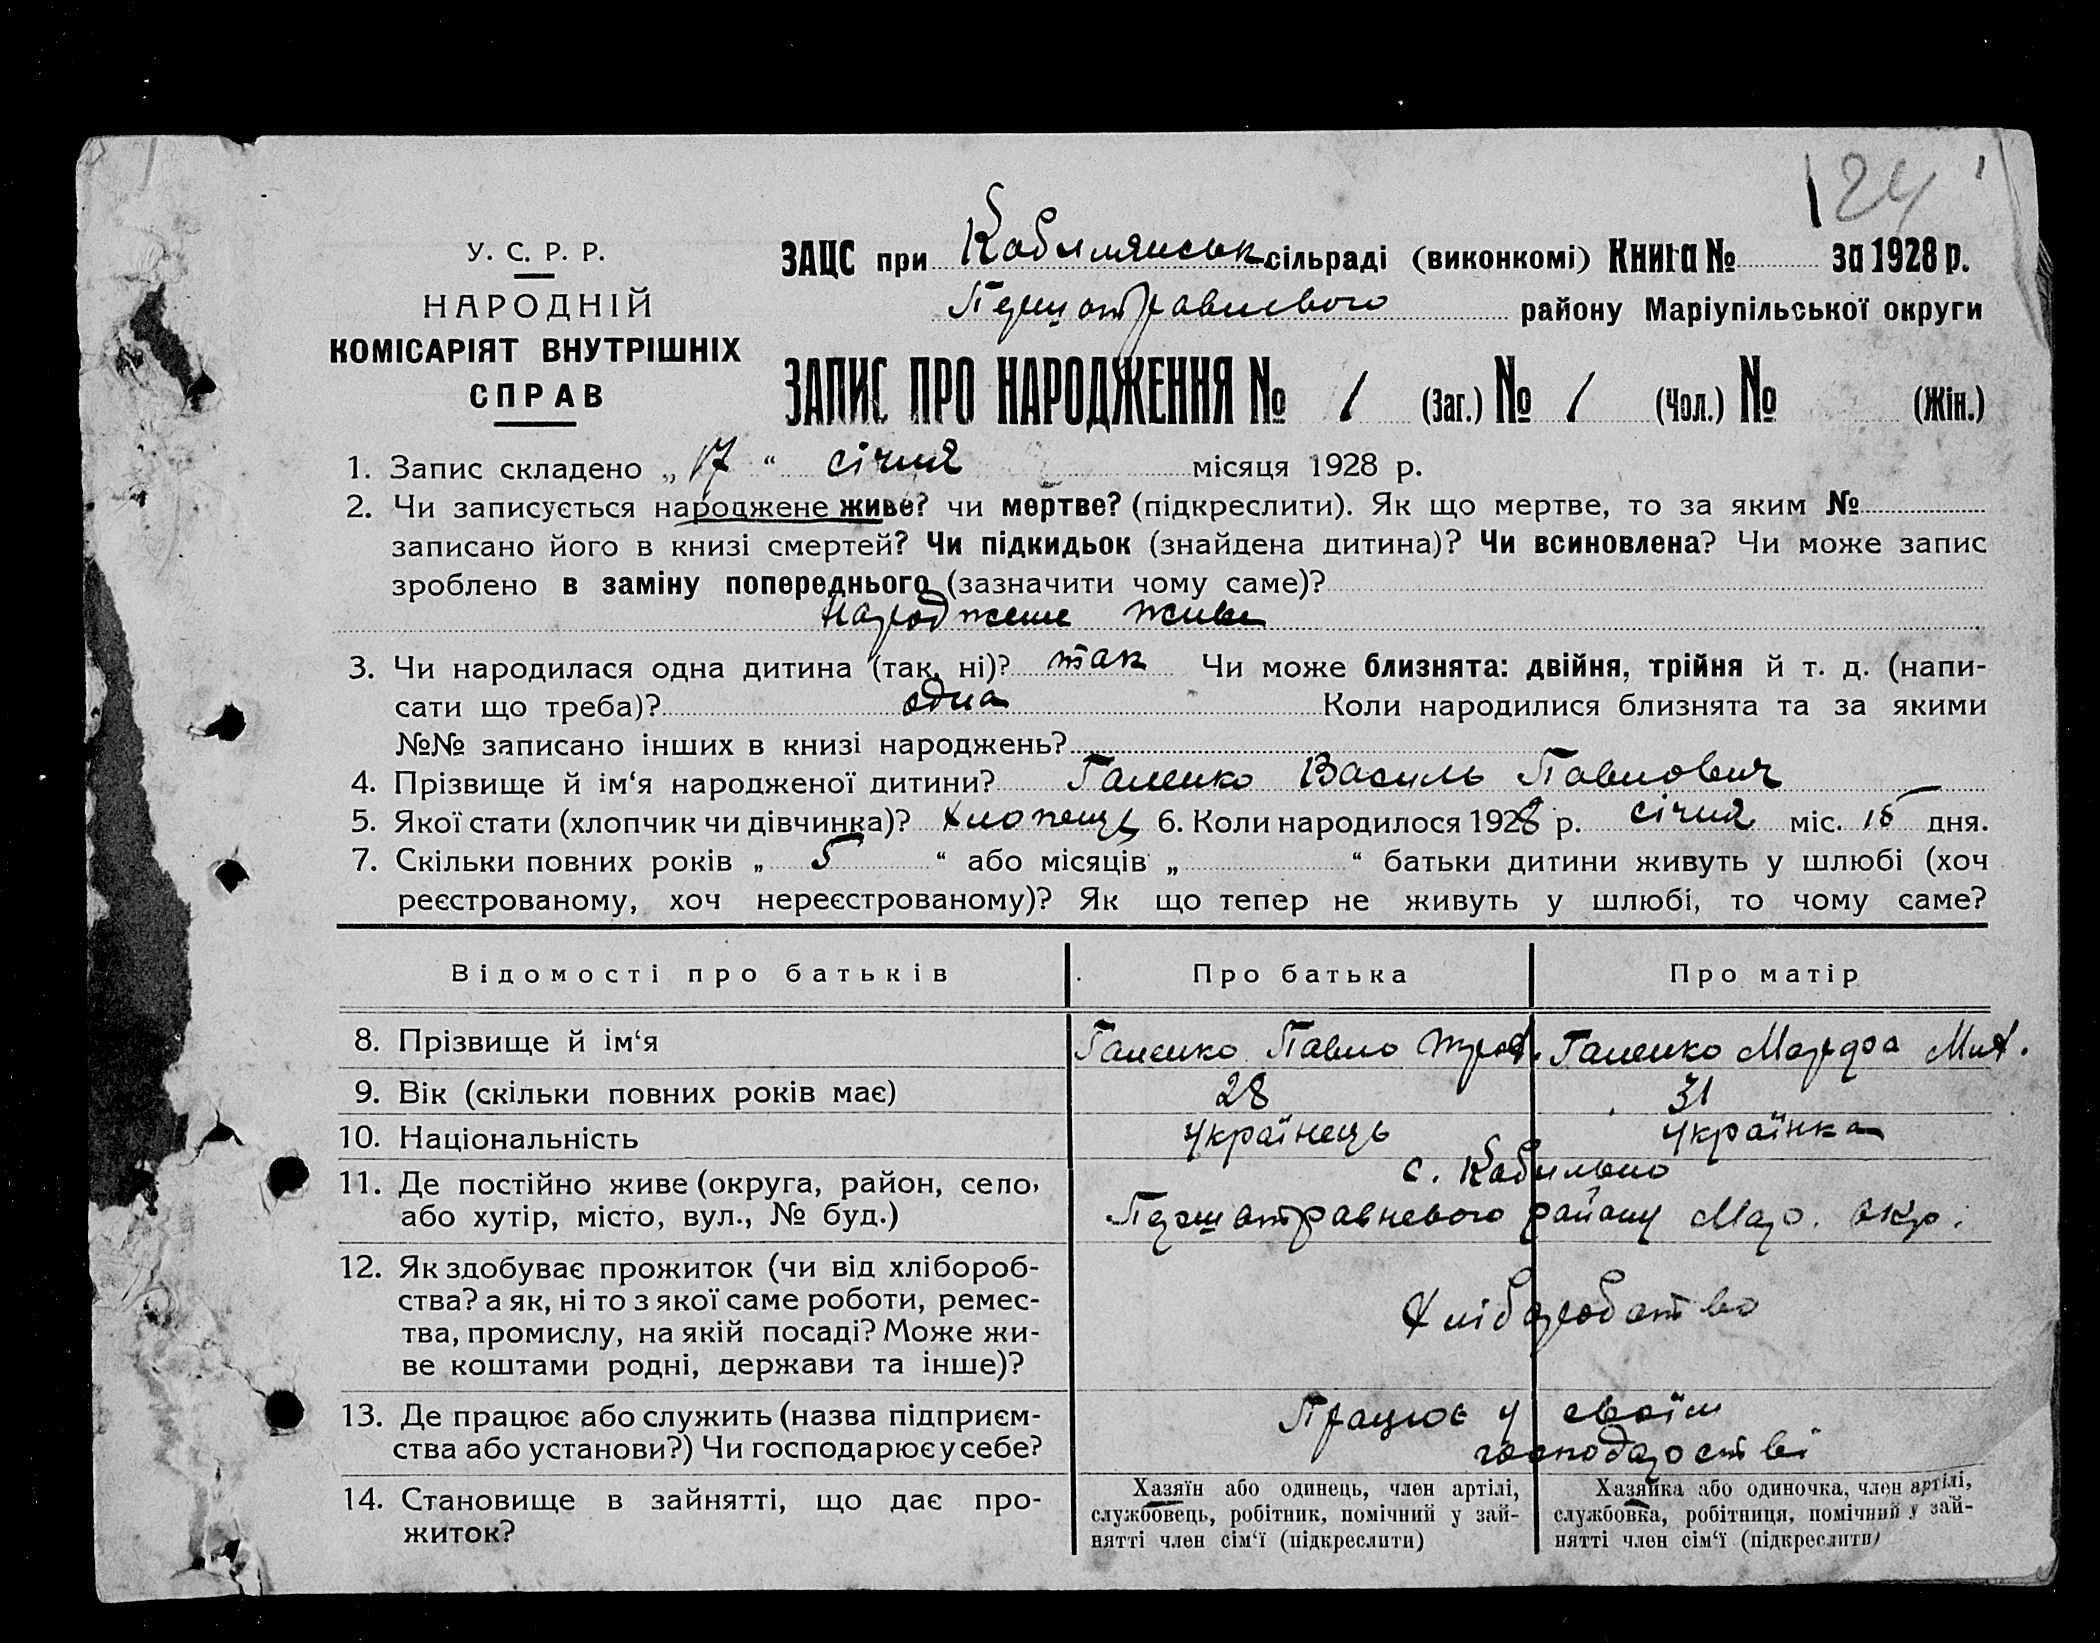 124
У. С. Р. Р.
НАРОДНІЙ
КОМІСАРІЯТ ВНУТРІШНІХ
СПРАВ
ЗАЦС при Кобилянськ сільраді (виконкомі) Книга № за 1928 р.
Першотравневого району Маріупільської округи
ЗАПИС ПРО НАРОДЖЕННЯ № 1 (Заг.) № 1 (Чол.) № (Жін.)
1. Запис складено „ 17 “ січня місяця 1928 р.
2. Чи записується народжене живе? чи мертве? (підкреслити). Як що мертве, то за яким №
записано його в книзі смертей? Чи підкидьок (знайдена дитина)? Чи всиновлена? Чи може запис
зроблено в заміну попереднього (зазначити чому саме)?
народжене живе
3. Чи народилася одна дитина (так, ні)? так Чи може близнята: двійня, трійня й т. д. (напи-
сати що треба)? одна Коли народилися близнята та за якими
№№ записано інших в книзі народжень?
4. Прізвище й ім‘я народженої дитини? Галенко Василь Павлович
5. Якої стати (хлопчик чи дівчинка)? хлопець 6. Коли народилося 1928 р. січня міс. 15 дня.
7. Скільки повних років „ 5 “ або місяців „ “ батьки дитини живуть у шлюбі (хоч
реєстрованому, хоч нереєстрованому)? Як що тепер не живуть у шлюбі, то чому саме?
Відомості про батьків Про батька Про матір
8. Прізвище й ім‘я Галенко Павло Галенко Марфа Мих.
9. Вік (скільки повних років має) 28 31
10. Національність Українець Українка
11. Де постійно живе (округа, район, село,
або хутір, місто, вул., № буд.)
с. Кобильно
Першотравневого району Мар. окр.
12. Як здобуває прожиток (чи від хлібороб-
ства? а як, ні то з якої саме роботи, ремес-
тва, промислу, на якій посаді? Може жи-
ве коштами родні, держави та інше)?
Хліборобство
13. Де працює або служить (назва підприєм-
ства або установи?) Чи господарює у себе?
Працює у своїм
господарстві
14. Становище в зайнятті, що дає про-
житок?
Хазяїн або одинець, член артілі,
службовець, робітник, помічний у зай-
нятті член сім‘ї (підкреслити)
Хазяйка або одиночка, член артілі,
службовка, робітниця, помічний у зай-
нятті член сім‘ї (підкреслити)